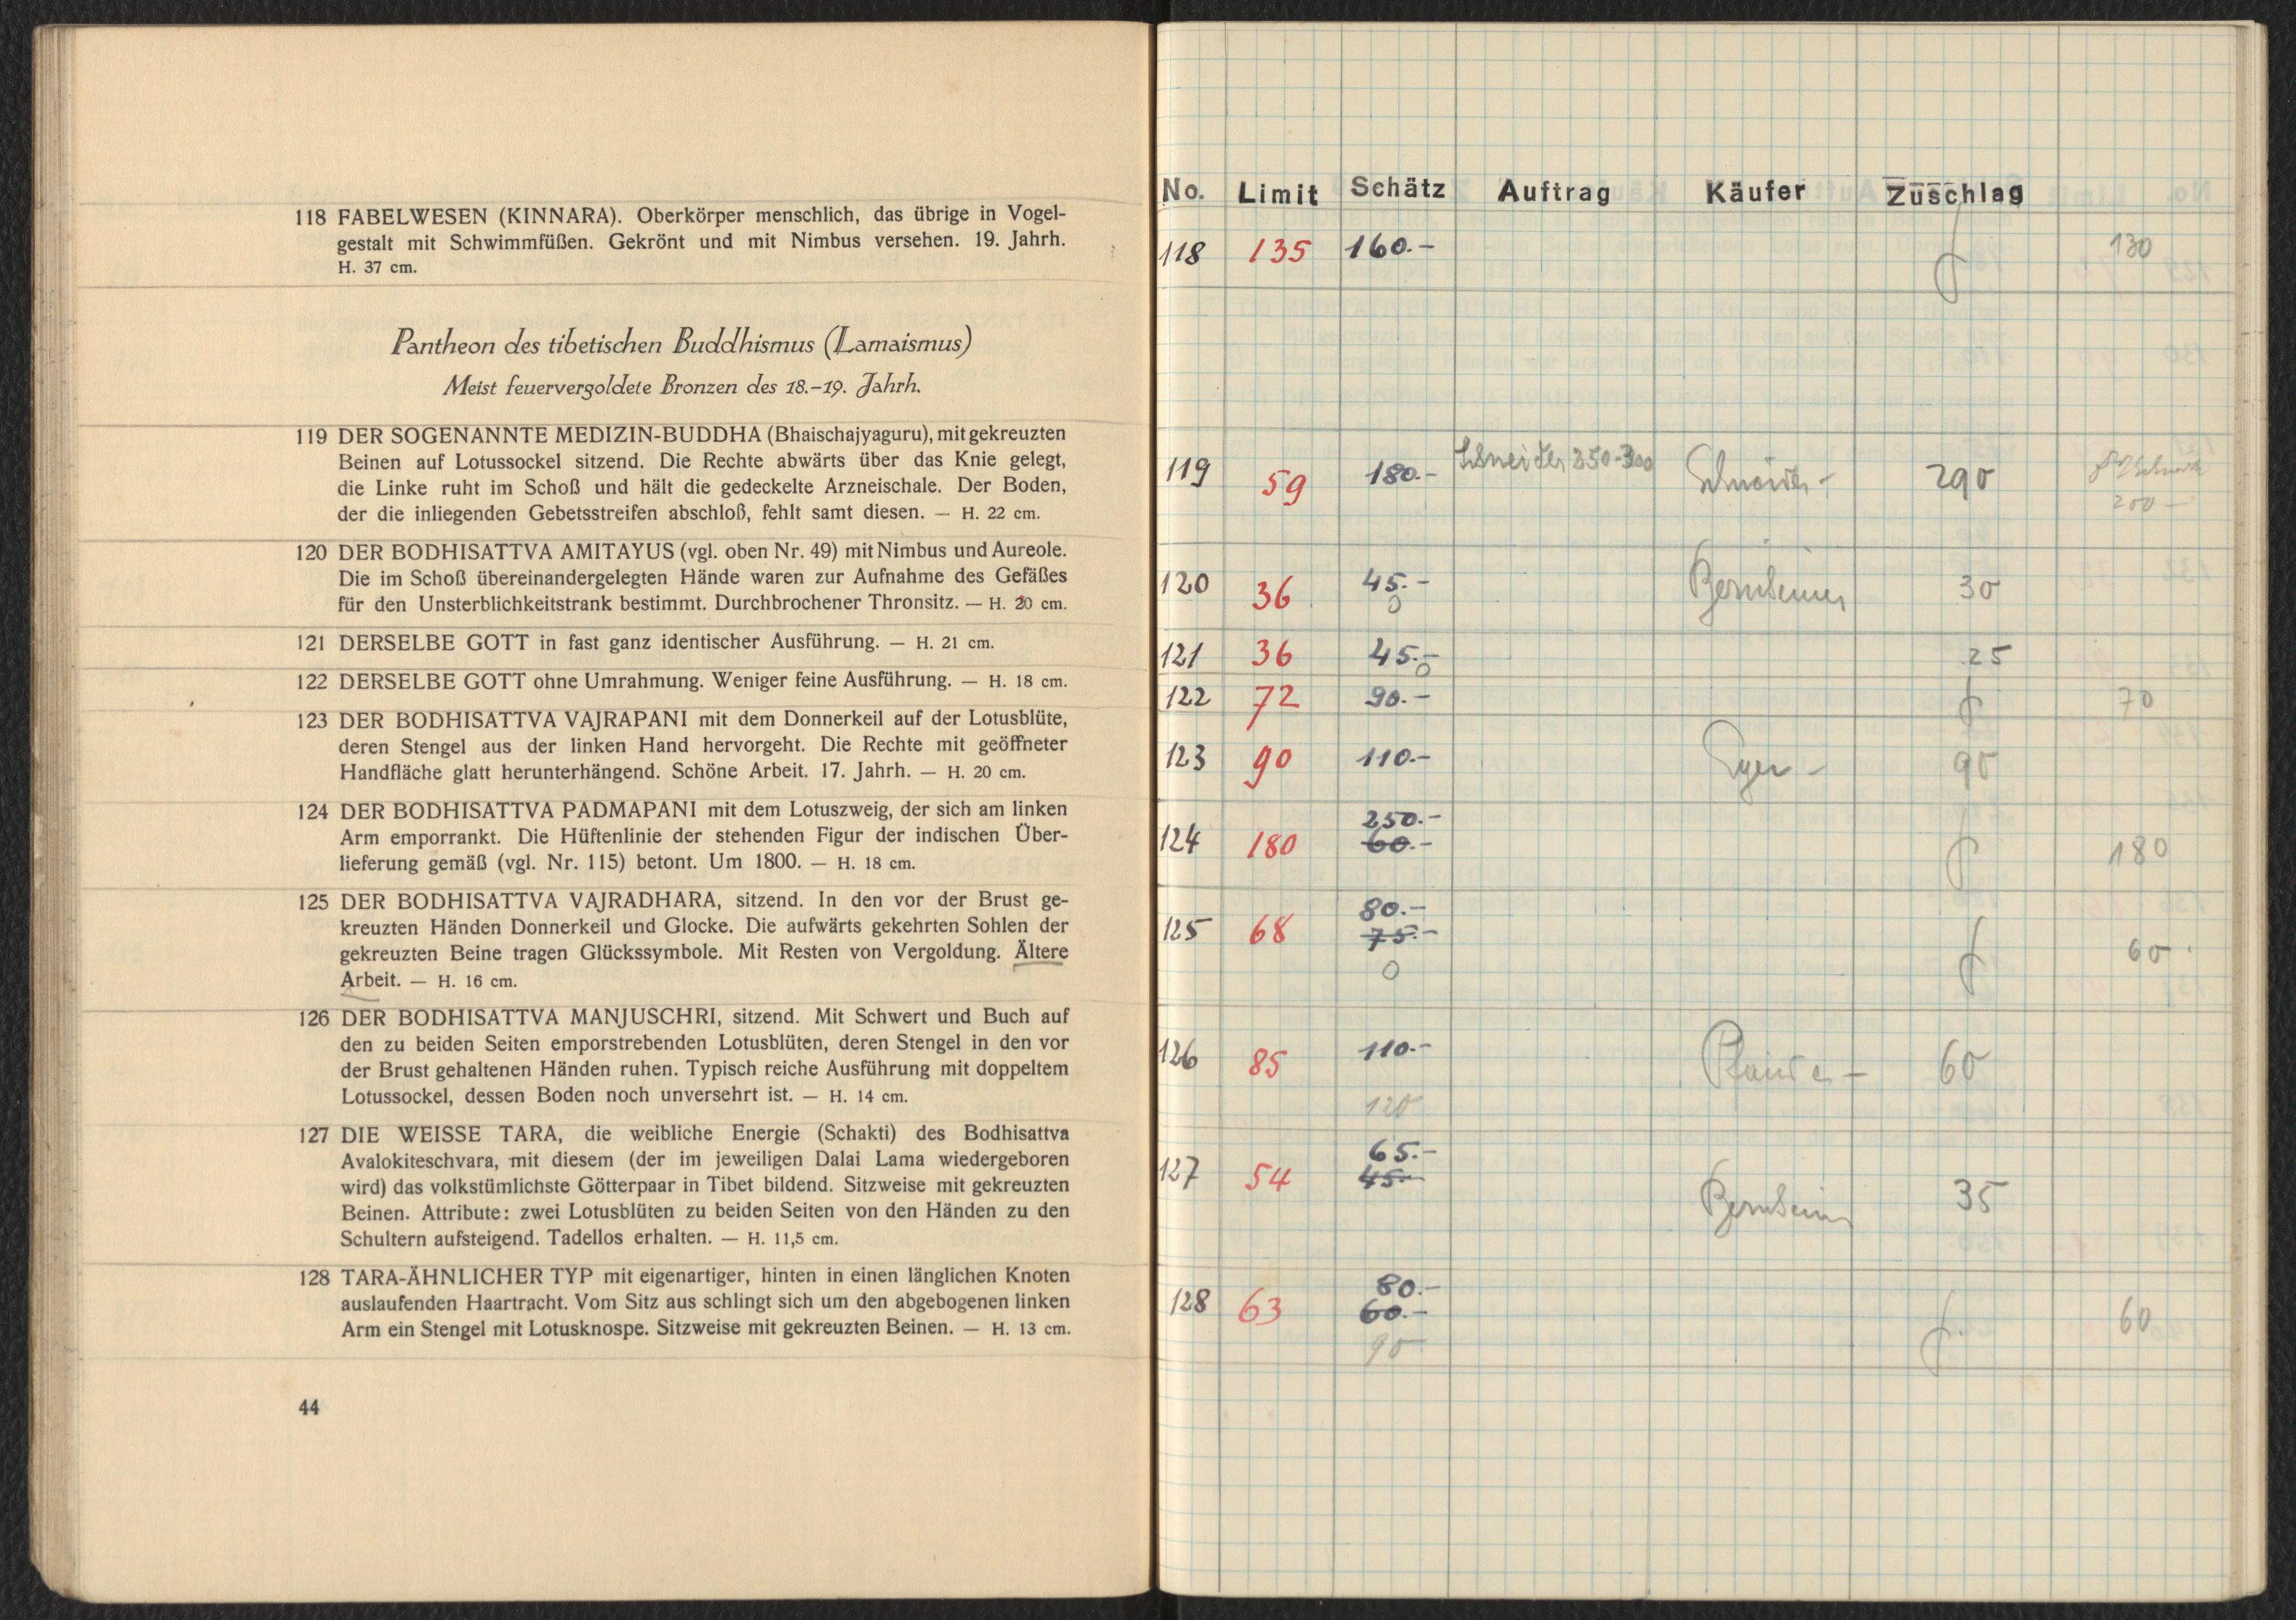 118 FABELWESEN (KINNARA). Oberkörper menschlich, das übrige in Vogel-
gestalt mit Schwimmfüßen. Gekrönt und mit Nimbus versehen. 19. Jahrh.
H. 37 cm.
Pantheon des tibetischen Buddhismus (Lamaismus)
Meist feuervergoldete Bronzen des 18.–19. Jahrh.
119 DER SOGENANNTE MEDIZIN-BUDDHA (Bhaischajyaguru), mit gekreuzten
Beinen auf Lotussockel sitzend. Die Rechte abwärts über das Knie gelegt,
die Linke ruht im Schoß und hält die gedeckelte Arzneischale. Der Boden,
der die inliegenden Gebetsstreifen abschloß, fehlt samt diesen. — H. 22 cm.
120 DER BODHISATTVA AMITAYUS (vgl. oben Nr. 49) mit Nimbus und Aureole.
Die im Schoß übereinandergelegten Hände waren zur Aufnahme des Gefäßes
für den Unsterblichkeitstrank bestimmt. Durchbrochener Thronsitz. — H. 20 cm.
121 DERSELBE GOTT in fast ganz identischer Ausführung. — H. 21 cm.
122 DERSELBE GOTT ohne Umrahmung. Weniger feine Ausführung. — H. 18 cm.
123 DER BODHISATTVA VAJRAPANI mit dem Donnerkeil auf der Lotusblüte,
deren Stengel aus der linken Hand hervorgeht. Die Rechte mit geöffneter
Handfläche glatt herunterhängend. Schöne Arbeit. 17. Jahrh. — H. 20 cm.
124 DER BODHISATTVA PADMAPANI mit dem Lotuszweig, der sich am linken
Arm emporrankt. Die Hüftenlinie der stehenden Figur der indischen Über-
lieferung gemäß (vgl. Nr. 115) betont. Um 1800. — H. 18 cm.
125 DER BODHISATTVA VAJRADHARA, sitzend. In den vor der Brust ge-
kreuzten Händen Donnerkeil und Glocke. Die aufwärts gekehrten Sohlen der
gekreuzten Beine tragen Glückssymbole. Mit Resten von Vergoldung. Ältere
Arbeit. — H. 16 cm.
126 DER BODHISATTVA MANJUSCHRI, sitzend. Mit Schwert und Buch auf
den zu beiden Seiten emporstrebenden Lotusblüten, deren Stengel in den vor
der Brust gehaltenen Händen ruhen. Typisch reiche Ausführung mit doppeltem
Lotussockel, dessen Boden noch unversehrt ist. — H. 14 cm.
127 DIE WEISSE TARA, die weibliche Energie (Schakti) des Bodhisattva
Avalokiteschvara, mit diesem (der im jeweiligen Dalai Lama wiedergeboren
wird) das volkstümlichste Götterpaar in Tibet bildend. Sitzweise mit gekreuzten
Beinen. Attribute: zwei Lotusblüten zu beiden Seiten von den Händen zu den
Schultern aufsteigend. Tadellos erhalten. — H. 11,5 cm.
128 TARA-ÄHNLICHER TYP mit eigenartiger, hinten in einen länglichen Knoten
auslaufenden Haartracht. Vom Sitz aus schlingt sich um den abgebogenen linken
Arm ein Stengel mit Lotusknospe. Sitzweise mit gekreuzten Beinen. — H. 13 cm.
44
No. Limit Schätz Auftrag Käufer Zuschlag
118 135 160.- 130
119 59 180.- Schneider 250-300 Schneider - 290
200 -
120 36 45.- Bernheimer 30
0
121 36 45.- 25
0
122 72 90.- 70
123 90 110.- 90
250.-
124 180 60.- 180
80.-
125 68 75.- 60
0
126 85 110.- 60
120
65.-
127 54 45.- Bernheimer 35
80.-
128 63 60.- 60
90